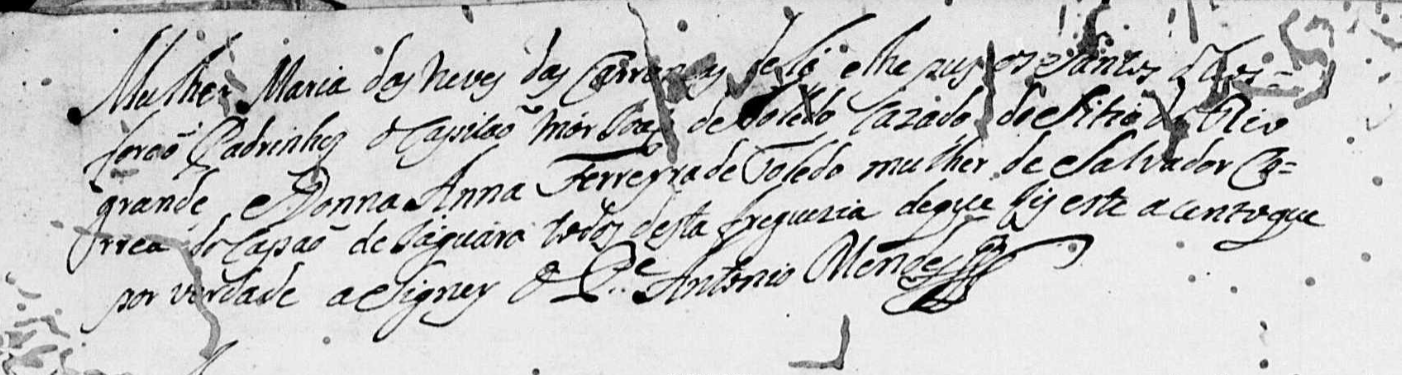 Mulher Maria das Neves das Carrancas de lá e lhe pus os Santos oleos =
forão Padrinhos o Capitão Mór João de Toledo cazado do Sitio do Rio
grande, e Donna Anna Ferreyra de Toledo mulher de Salvador Co=
rrea do Capão de Jaguara todos desta freguezia de que fis este acento que
por verdade asigney O P.e Antonio Mendes